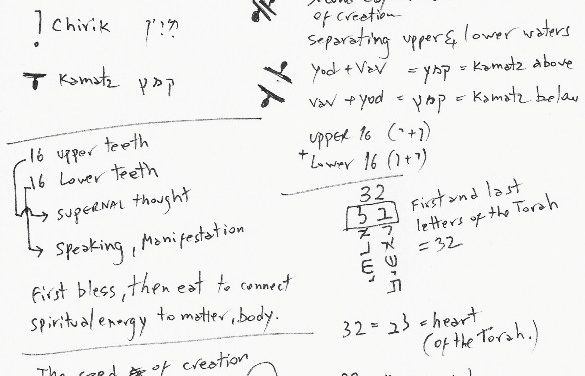 Chirik
Kamatz קמץ
16 upper teeth
16 Lower teeth
SUPERNAL thought
Speaking, Manifestation
First bless, then eat to connect
spiritual energy to matter, body.
The seed of creation
of creation
separating upper & lower waters
Yod + Vav = קמץ = Kamatz above
Vav + yod = קמץ = Kamatz below
upper 16 (י+ו)
+ Lower 16 (ו+י)
32
ל ב
א ר
ר א
ש ש
י י
ת
First and last
letters of the Torah
= 32
32 = לב = heart
(of the Torah.)